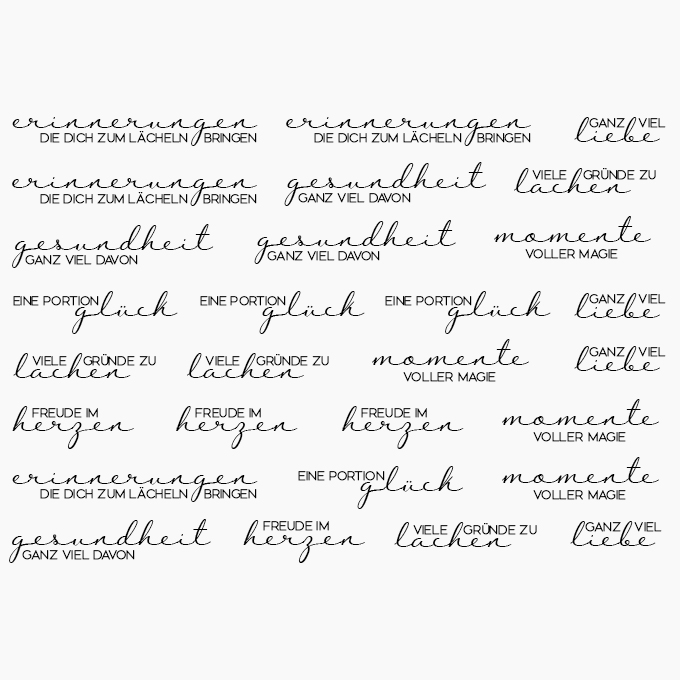 erinnerungen DIE DICH ZUM LÄCHELN BRINGEN
erinnerungen DIE DICH ZUM LÄCHELN BRINGEN
GANZ VIEL liebe
erinnerungen DIE DICH ZUM LÄCHELN BRINGEN
gesundheit GANZ VIEL DAVON
VIELE GRÜNDE ZU lachen
gesundheit GANZ VIEL DAVON
gesundheit GANZ VIEL DAVON
momente VOLLER MAGIE
EINE PORTION glück
EINE PORTION glück
EINE PORTION glück
GANZ VIEL liebe
VIELE GRÜNDE ZU lachen
VIELE GRÜNDE ZU lachen
momente VOLLER MAGIE
GANZ VIEL liebe
FREUDE IM herzen
FREUDE IM herzen
FREUDE IM herzen
momente VOLLER MAGIE
erinnerungen DIE DICH ZUM LÄCHELN BRINGEN
EINE PORTION glück
momente VOLLER MAGIE
gesundheit GANZ VIEL DAVON
FREUDE IM herzen
VIELE GRÜNDE ZU lachen
GANZ VIEL liebe